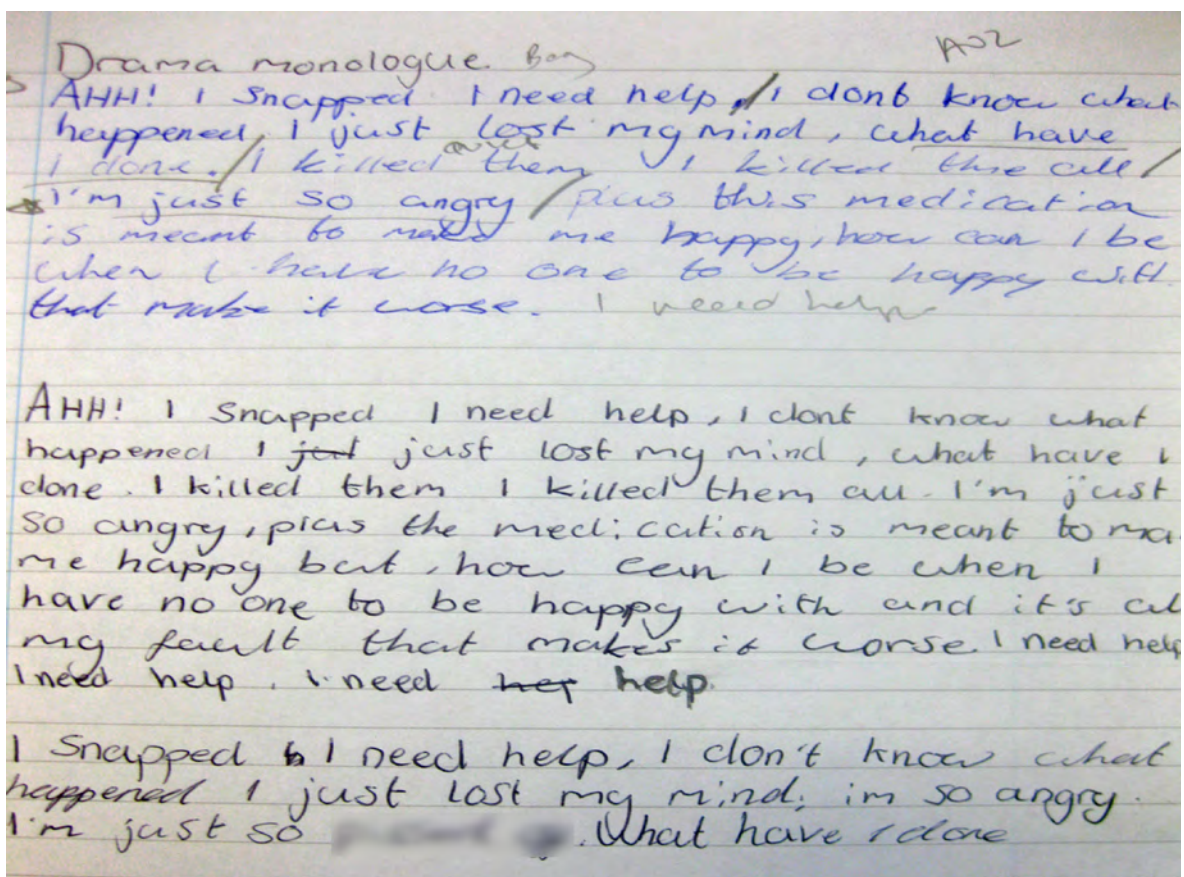 Drama monologue. AO2
AHH! I Snapped I need help, / I dont know what
happened, I just lost my mind, what have
I done. / I killed them I killed the all /
I'm just so angry / plus this medication
is meant to make me happy, how can I be
when I have no one to be happy with
that make it worse. I need help
AHH! I Snapped I need help, I dont know what
happened I just lost my mind, what have I
done. I killed them I killed them all. I'm just
so angry, plus the medication is meant to ma
me happy but, how can I be when I
have no one to be happy with and it's al
my fault that makes it worse. I need help
I need help. I need help.
I Snapped I need help, I don't know what
happened I just lost my mind, im so angry.
I'm just so . What have I done